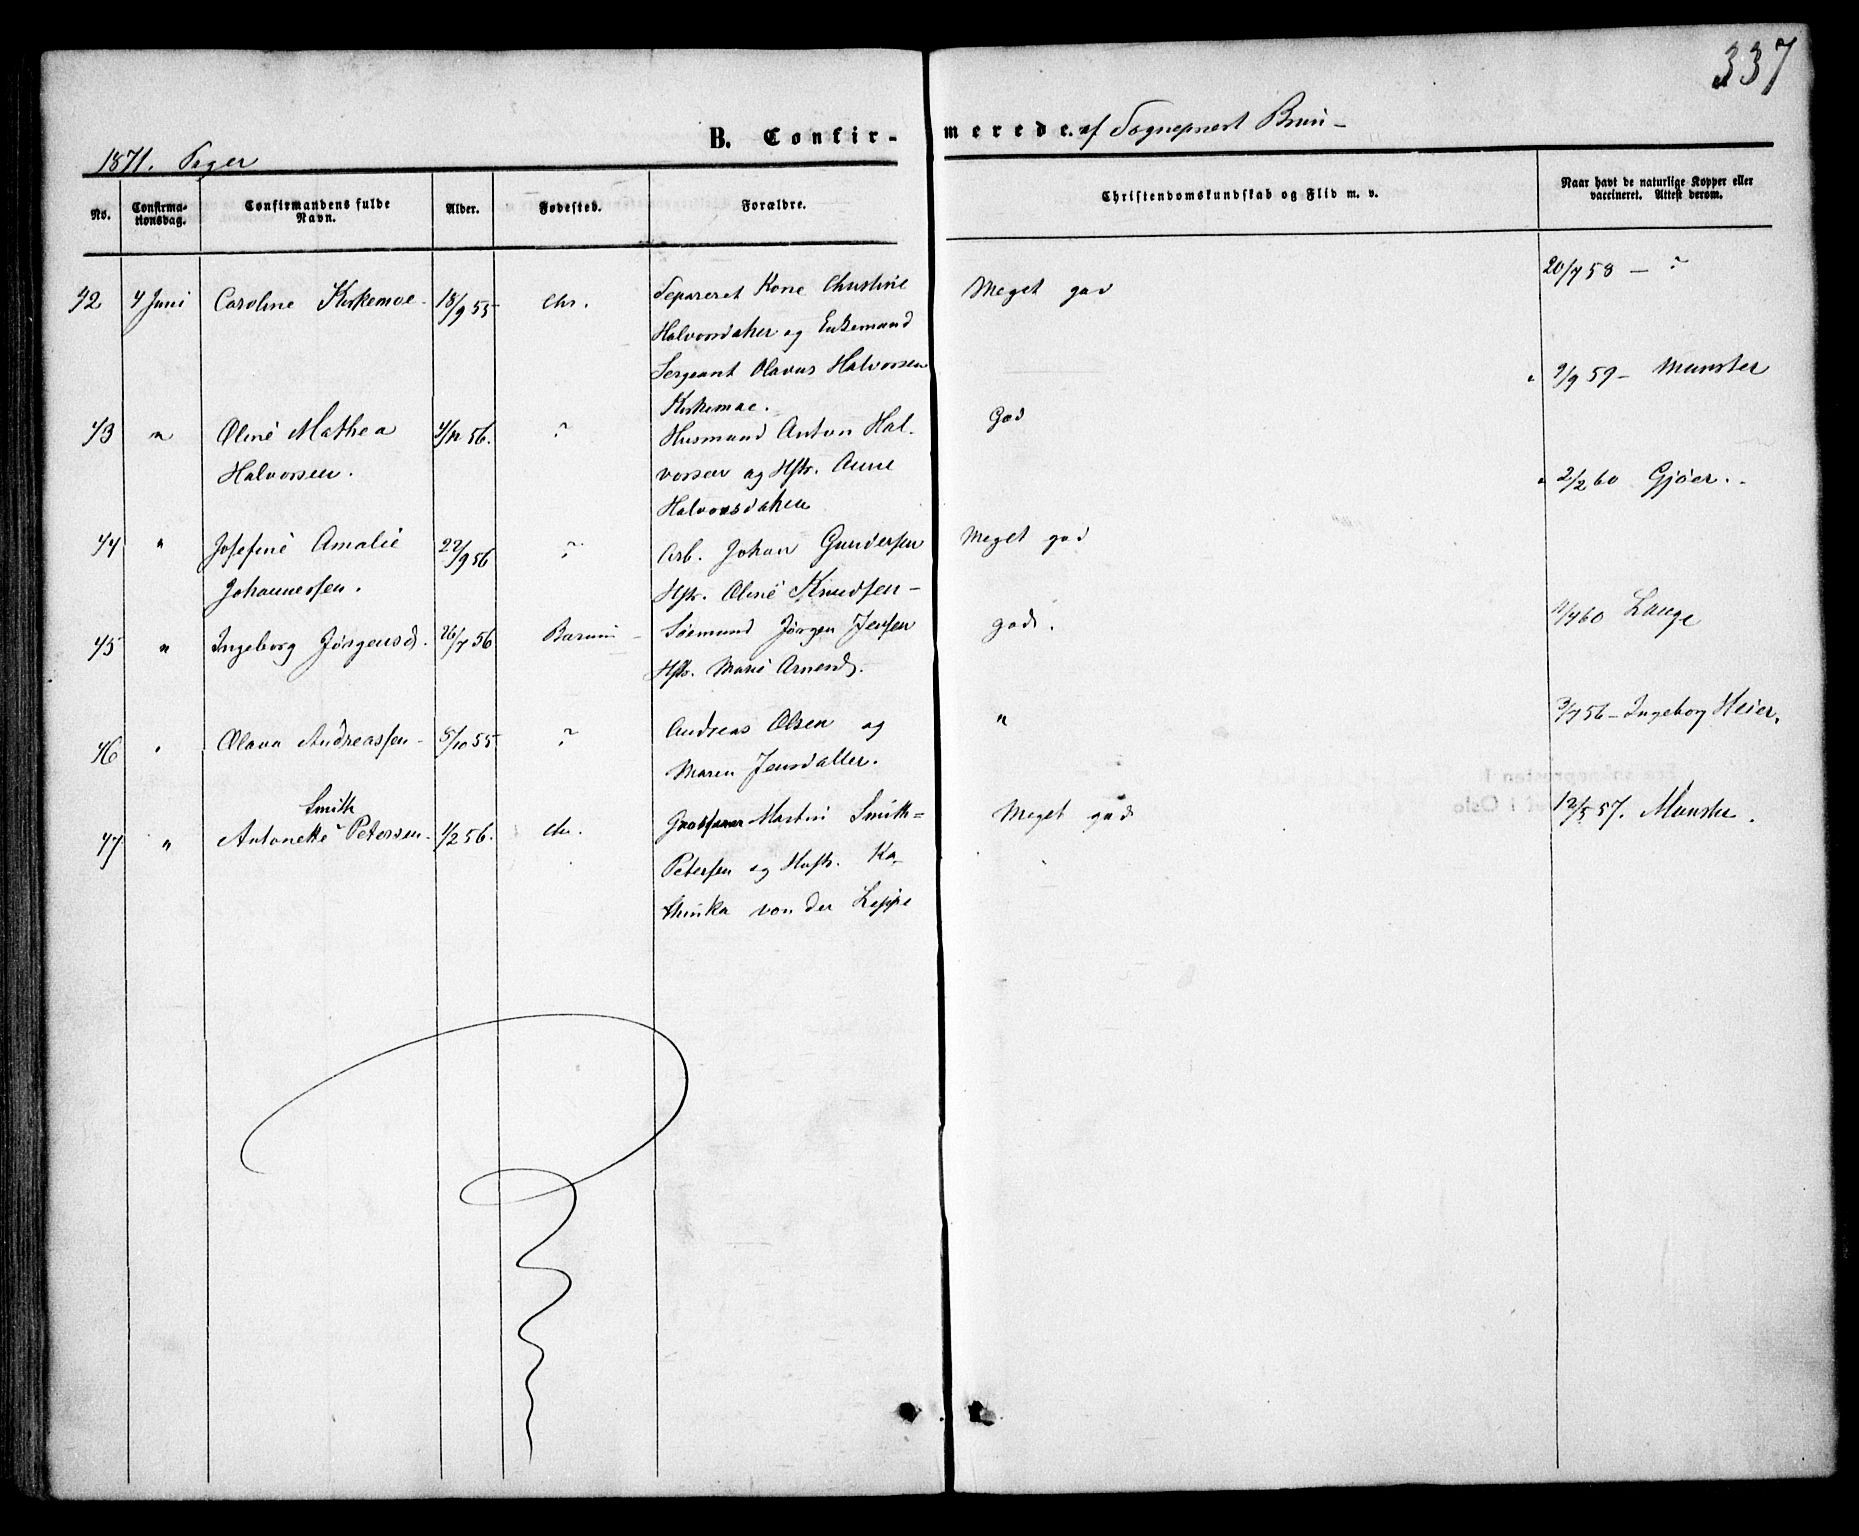 337
B. Confir-merede. af Sognepræst Brun
1871. Piger
No.
Confirma-
tionsdag.
Confirmandens fulde
Navn.
Alder.
Fødested.
Forældre.
Christendomskundskab og Flid m. v.
Naar havt de naturlige Kopper eller
vaccineret. Attest derom.
42 4 Juni Caroline Kirkemoe 18/9 55 Chr. Separeret Kone Christine Meget god 20/7 58 – ?
Halvorsdatter og Enkemand
Sergeant Olavus Halvorsen
Kirkemoe.
43 " Oline Mathea 4/12 56. ? Husmand Anton Hal- God 9/9 59 – Munster
Halvorsen. vorsen og Hstr. Anne
Halvorsdatter
44 " Josefine Amalie 22/9 56 ? Arb. Johan Gundersen Meget god 2/2 60 Gjöer.
Johannessen. Hstr. Oline Knudsen –
45 " Ingeborg Jørgensd. 26/7 56 Bærum Sømand Jørgen Jensen god. 11/7 60 Lange
Hstr. Marie Arnesd.
46 " Olava Andreassen 5/10 55 ? Andreas Olsen og " 3/7 56 – Ingeborg Heier.
Maren Jensdatter.
Smith
47 " Antonette Petersen. 4/2 56. Chr. Martin Smith= Meget god 12/5 57. Munster.
Petersen og Hustr. Ka-
thinka von der Lippe